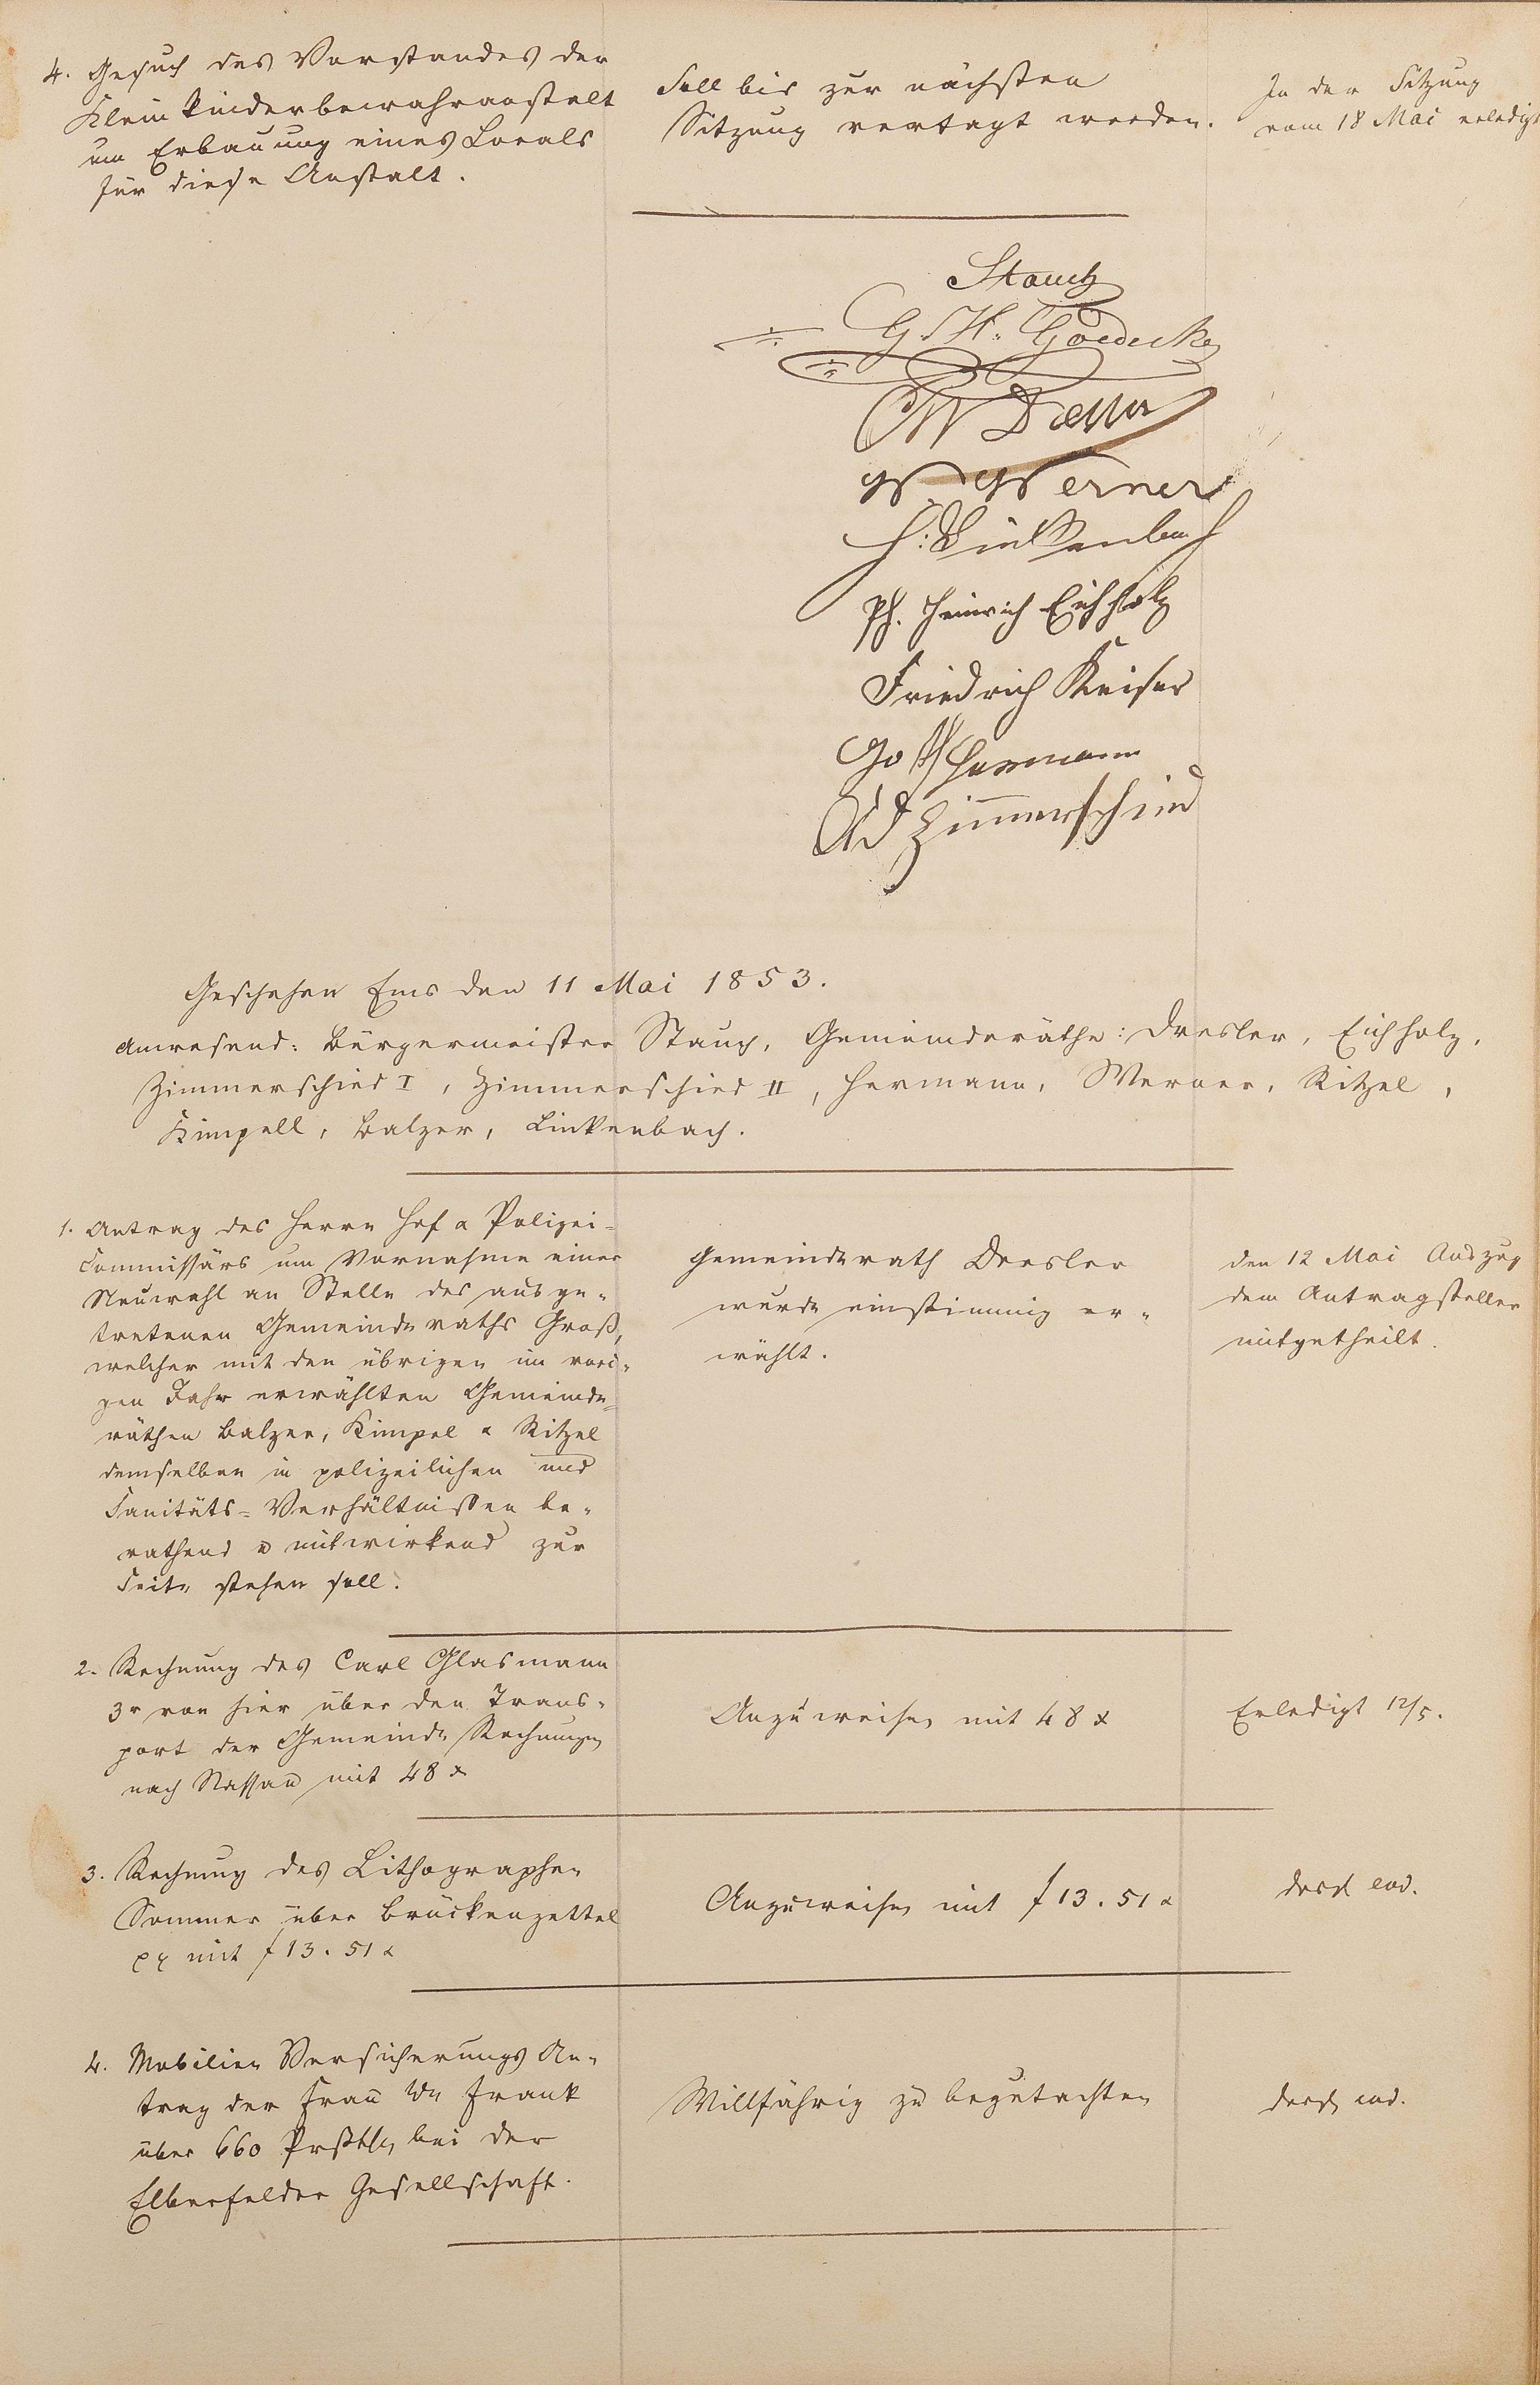 4. Gesuch des Vorstandes der
Kleinkinderbewahranstalt
um Erbauung eines Locals
für diese Anstalt.
Soll bis zur nächsten
Sitzung vertagt werden.
In der Sitzung
vom 18 Mai erledigt
Stauch
G. H. Goedecke
W Dresler
W. Werner
H: Linkenbach
Ph. Heinrich Eichholz
Friedrich Keiser
Hermann
Ad Zimmerschied
Geschehen Ems den 11 Mai 1853.
Anwesend: Bürgermeister Stauch, Gemeinderäthe: Dresler, Eichholz,
Zimmerschied I, Zimmerschied II, Hermann, Werner, Ritzel,
Kimpell, Balzer, Linkenbach.
1. Antrag des Herrn Hof & Polizei=
Commissärs um Vornahme einer
Neuwahl an Stelle des ausge-
tretenen Gemeinderaths Groß,
welcher mit den übrigen im vori-
gen Jahr erwählten Gemeinde=
räthen Balzer, Kimpel & Ritzel
demselben in polizeilichen und
Sanitäts=Verhältnißen be-
rathend u mitwirkend zur
Seite stehen soll.
Gemeinderath Dresler
wurde einstimmig er-
wählt.
den 12 Mai Auszug
dem Antragsteller
mitgetheilt.
2. Rechnung des Carl Glasmann
3r von hier über den Trans-
port der Gemeinde Rechnungen
nach Nassau mit 48 x
Anzuweisen mit 48 x
Erledigt 12/5.
3. Rechnung des Lithographen
Sommer über Brückenzettel
pp mit f 13. 51 x
Anzuweisen mit f 13. 51 x
eod.
4. Mobilien Versicherungs An-
trag der Frau We Frank
über 660 Prßthlr bei der
Elberfelder Gesellschaft.
Willfährig zu begutachten
eod.